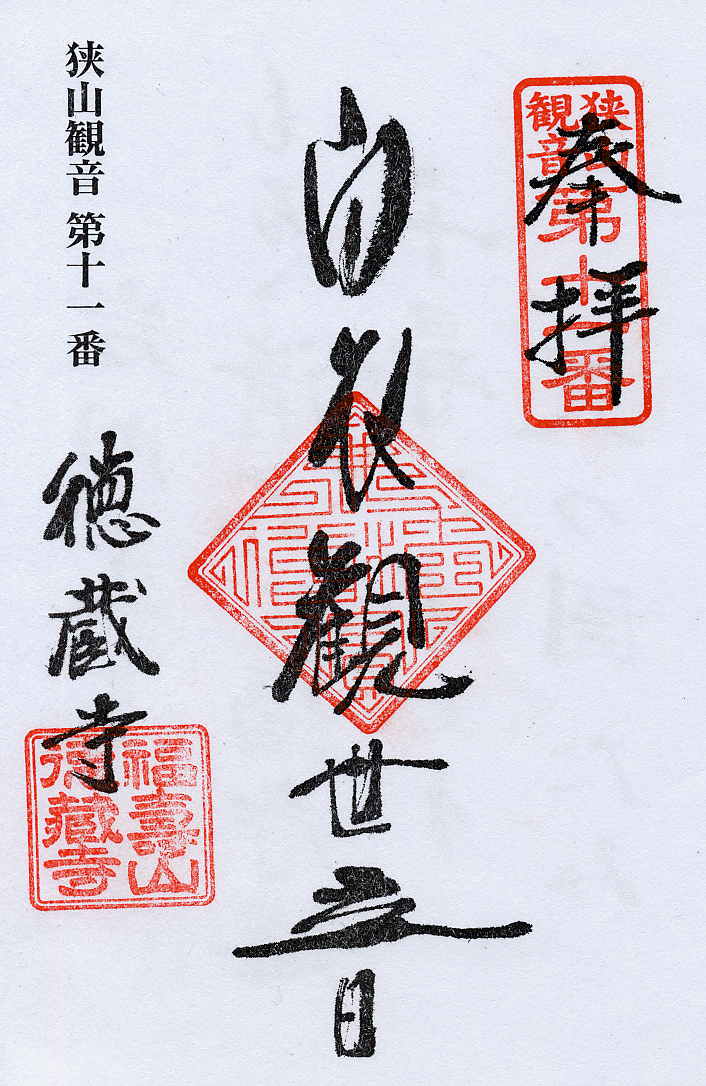 奉拝
狭山観音第十一番
白衣観世音
狭山観音 第十一番
徳蔵寺
福壽山
徳蔵寺